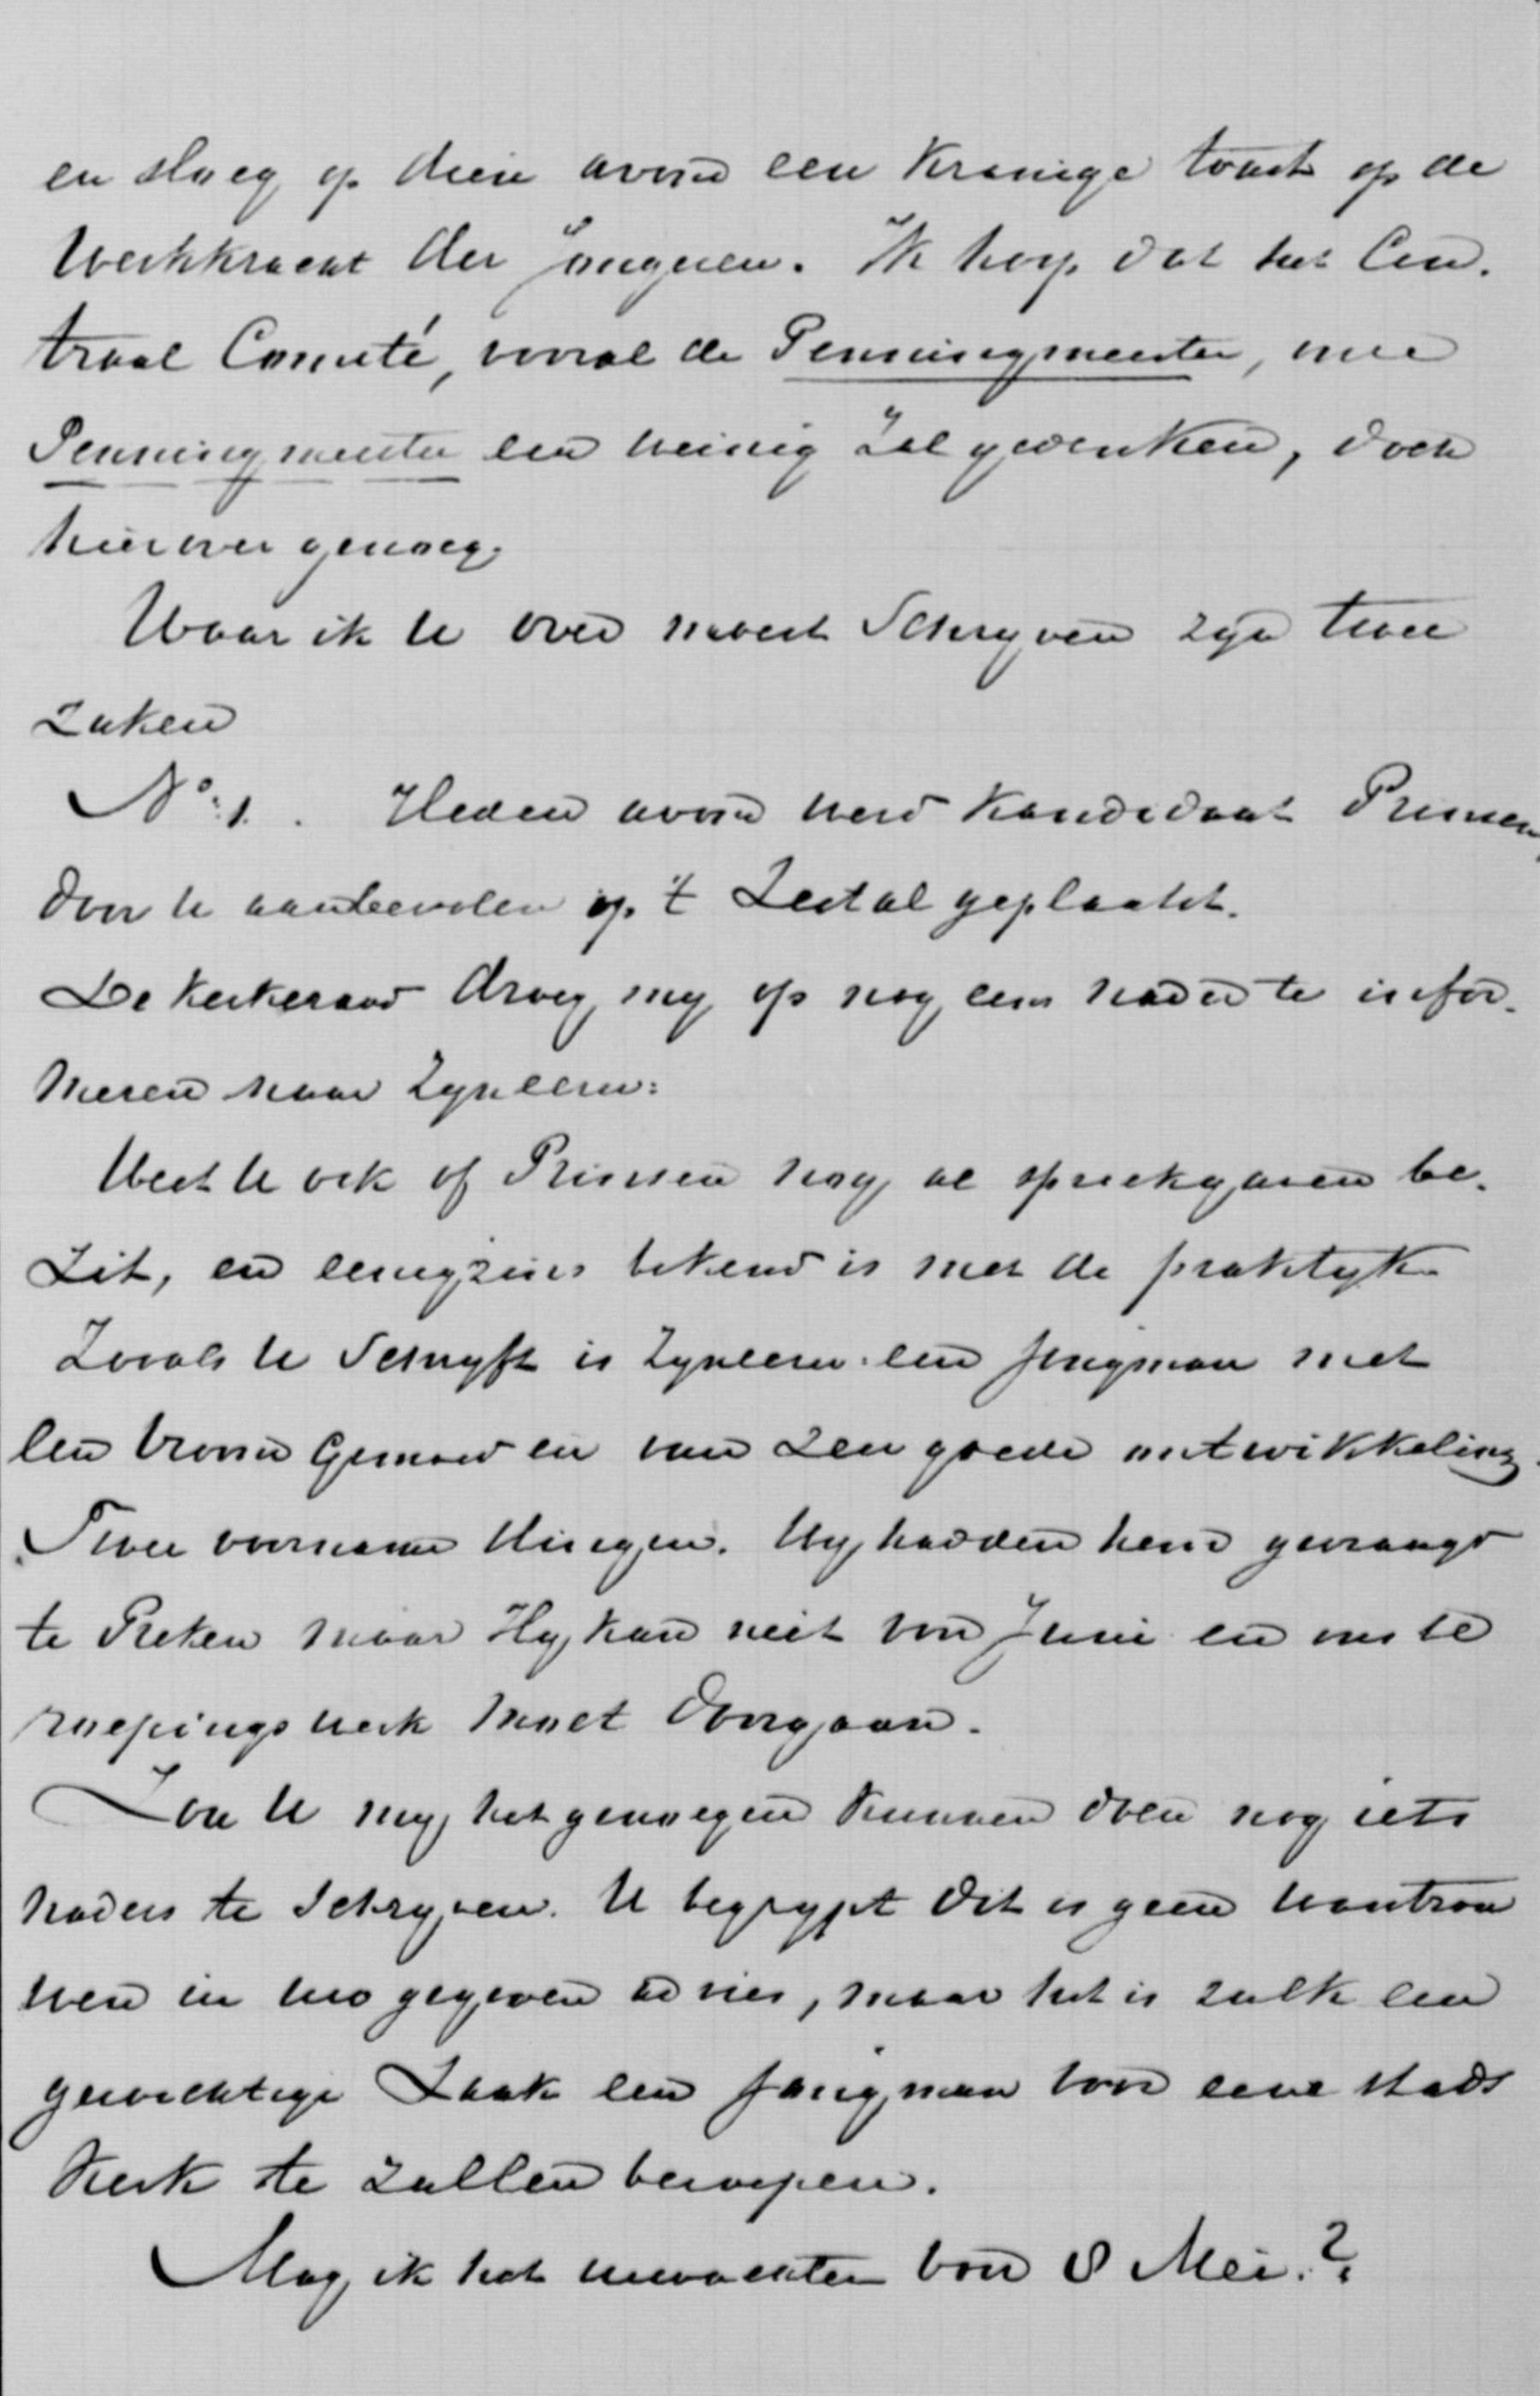 en sloeg op dien avond een kranige toast op de
Werkkracht der jongeren. Ik hoop dat het Cen.
traal Comité, vooral de Penningmeester, mee
Penningmeester een weinig zal gedenken, doch
hierover genoeg.
Waar ik U over moest Schryven zyn twee
Zaken
No: 1. Heden avond werd Kandidaat Prinsen
door U aanbevolen op 't Zestal geplaatst.
De Kerkeraad droeg my op nog eens nader te infor.
meren naar ZynEerw:
Weet U ook of Prinsen nog al spreekgaven be.
Zit, en eenigzins bekend is met de praktyk
Zooals U Schryft is ZynEerw: een jongman met
een vroom Gemoed en van Zeer goede ontwikkeling.
Twee voorname dingen. Wy hadden hem gevraagd
te Preken maar Hy kan niet voor Juni en ons be
roepingswerk moet doorgaan.
Zou U my het genoegen kunnen doen nog iets
naders te Schryven. U begrypt dit is geen wantrou
wen in uw gegeven advies, maar het is zulk een
gewichtige Zaak een jongman voor eene stads
Kerk te zullen beroepen.
Mag ik het verwachten voor 8 Mei.?